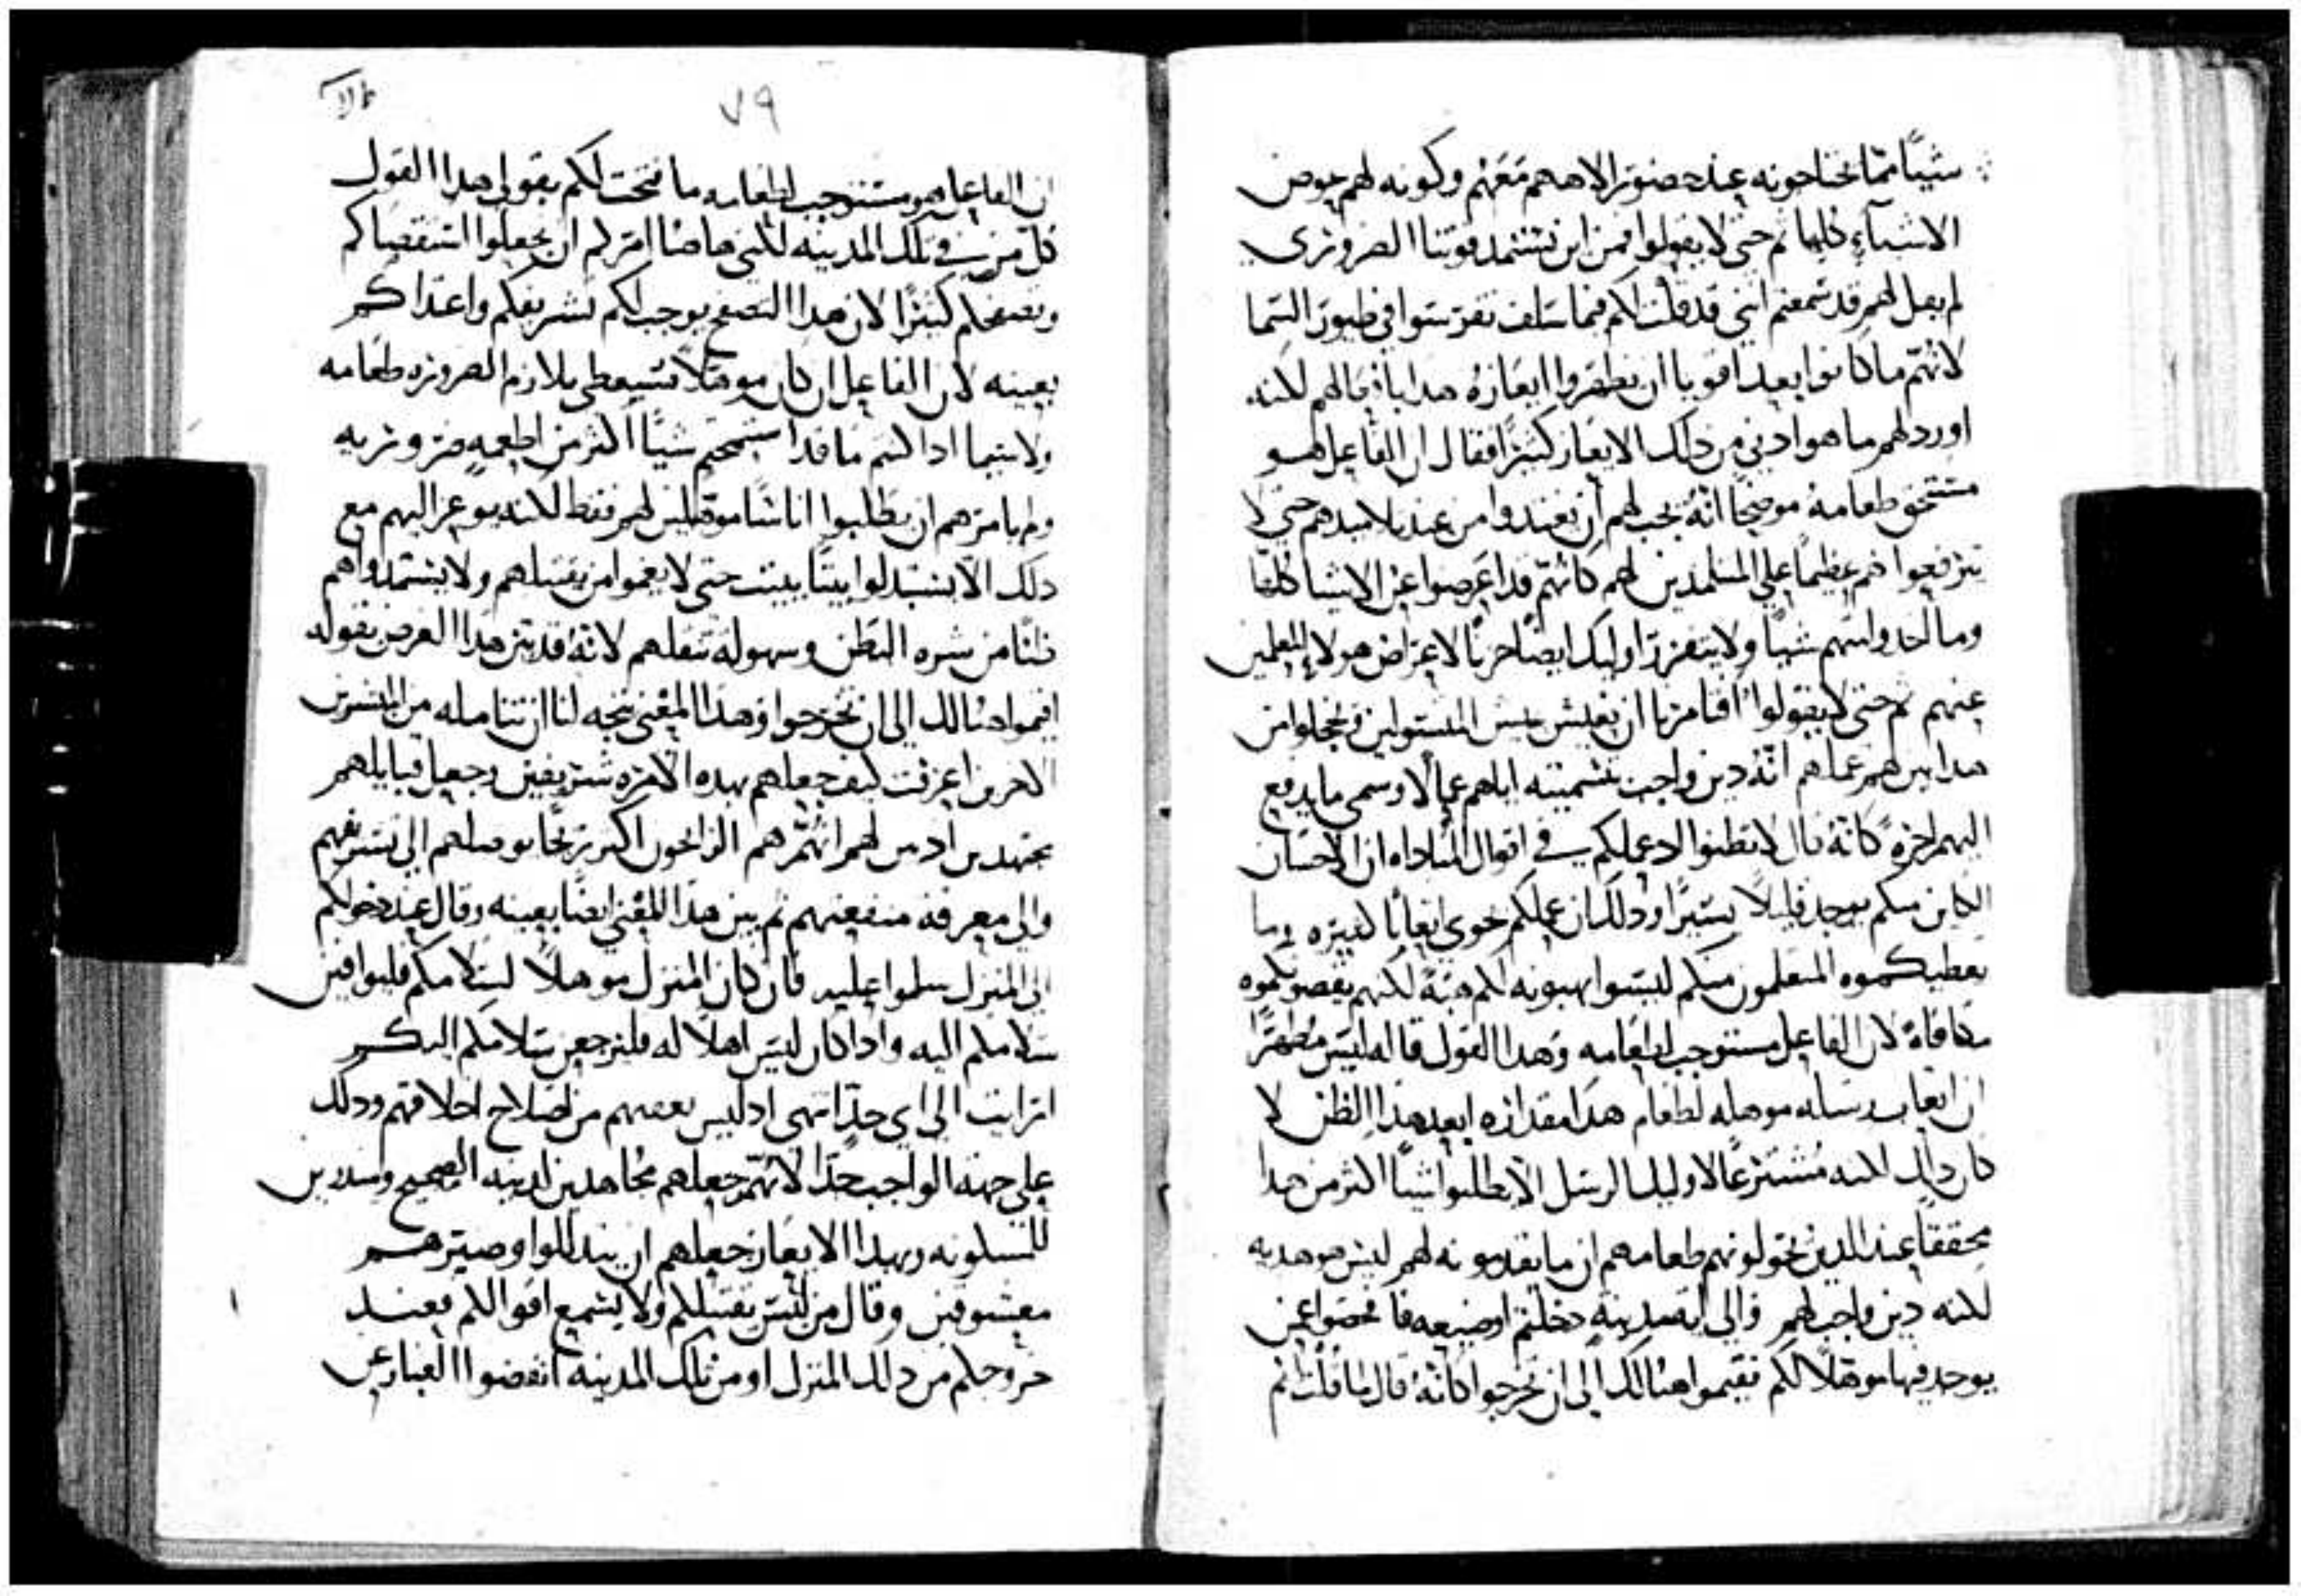 شيئًا مما يحتاجونه عند حضور الاههم معهم وكونه لهم عوض
الاشيآء كلها ثم حتى لا يقولوا فمن اين نستمد قوتنا الضروري
لم يقل لهم قد سمعتم انني قد قلت لكم فيما سلف تفرسوا في طيور السما
لانهم ما كانوا بعد اقويا ان يظهروا ايعازه هدا بافعالهم لكنه
اورد لهم ما هو ادنى من دلك الايعاز كثيرًا فقال ان الفاعل هو
مستحق طعامه موضحًا انه يجب لهم ان يغتدوا من عند تلاميدهم حتى لا
يترفعوا هم عظيمًا على المتلمدين لهم كانهم قد اعرضوا عن الاشيا كلها
وما اخدوا منهم شيئًا ولا يتفزر اوليك ايضًا حزنًا لاعراض هولاء المعلمين
عنهم ثم حتى لا يقولوا افتامرنا ان نعيش عيش المتسولين فيخجلوا من
هدا بين لهم عملهم انه دين واجب بتسميته اياهم عمالا وسمى ما يدفع
اليهم اجرة كانه قال لا تظنوا اد عملكم في اقوال المناداه ان الاحسان
الكاين منكم يوجد قليلاً يسيرًا ودلك ان عملكم حوى اتعابًا كثيره وما
يعطيكموه المتعلمون منكم ليسوا يهبونه لكم هبة لكنهم يعوضونكموه
مكافاة لان الفاعل مستوجب لطعامه وهدا القول قاله ليس مظهرًا
ان اتعاب رسله موهله لطعام هدا مقداره ابعد هدا الظن لا
كان دلك لكنه مشترعًا لاوليك الرسل الا يطلبوا شيئًا اكثر من هدا
محققًا عند الدين يخولونهم طعامهم ان ما يقدمونه لهم ليس هو هديه
لكنه دين واجب لهم والى اية مدينة دخلتم او ضيعه فافحصوا عمن
يوجد فيها موهلاً لكم فقيموا هنالك الى ان تخرجوا كانه قال ما قلت لكم
٧٩
ان الفاعل هو مستوجب لطعامه وما فتحت لكم بقولي هدا القول
كل من في تلك المدينه لكنني هاهنا امركم ان تجعلوا استقصاكم
وتصفحكم كثيرًا لان هدا التصفح يوجب لكم تشريفكم واغتداكم
بعينه لان الفاعل ان كان موهلاً فسيعطي بلازم الضروره طعامه
ولا سيما ادا كنتم ما قد استمحتم شيئًا اكثر من اطعمة ضروريه
ولم يامرهم ان يطلبوا اناسًا موهلين لهم فقط لكنه يوعز اليهم مع
دلك الا يستبدلوا بيتًا ببيت حتى لا يغموا من يقبلهم ولا يستمدوا هم
ثلبًا من شره البطن وسهولة تنقلهم لانه قد بين هدا الغرض بقوله
اقيموا هنالك الى ان تخرجوا وهدا المعنى يتجه لنا ان نتامله من البشيرين
الاخرين اعرفت كيف جعلهم بهده الامره شريفين وجعل قبايلهم
مجتهدين اد بين لهم انهم هم الرابحون اكثر ربحًا بوصلهم الى تشريفهم
والى معرفة منفعتهم ثم بين هدا المعنى ايضًا بعينه وقال عند دخولكم
الى المنزل سلموا عليه فان كان المنزل موهلاً لسلامكم فليوافين
سلامكم اليه وادا كان ليس اهلاً له فليرجعن سلامكم اليكم
ارايت الى اي حدٍ انتهى اد ليس يعفيهم من اصلاح اخلاقهم ودلك
على جهة الواجب جدًا لانهم جعلهم مجاهدين لدينه الصحيح ومنادين
للمسكونه وبهدا الايعاز جعلهم ان يتدللوا وصيرهم
معشوقين وقال من ليس يقبلكم ولا يسمع اقوالكم فعند
خروجكم من دلك المنزل او من تلك المدينه انفضوا الغبار عن